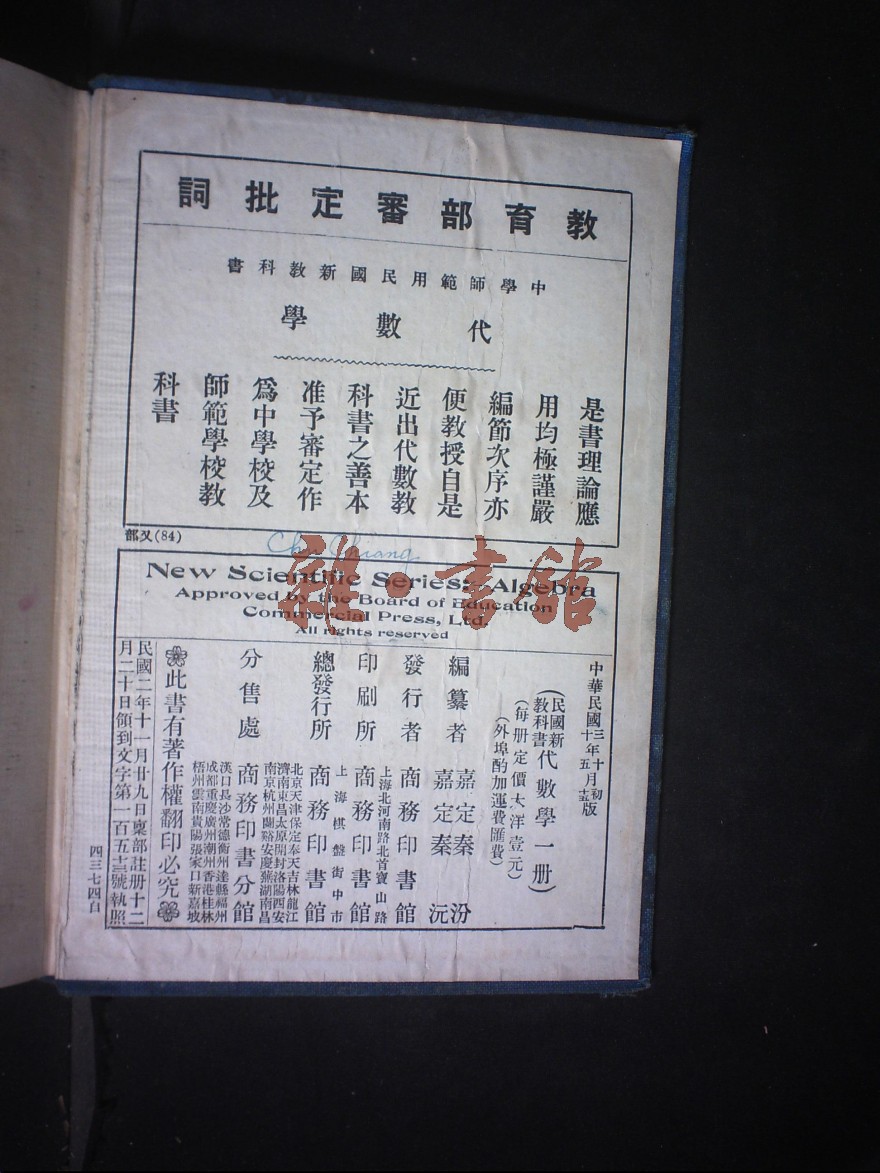 教育部審定批詞
中學師範用民國新教科書
代數學
是書理論應
用均極謹嚴
編節次序亦
便教授自是
近出代數教
科書之善本
准予審定作
爲中學校及
師範學校教
科書
(84)又部
Chu Chiang
雜·書館
New Scientific Series: Algebra
Approved by the Board of Education
Commercial Press, Ltd.
All rights reserved
中華民國三年十月初版
十年五月
(民國新教科書代數學一册)
(每册定價大洋壹元)
(外埠酌加運費匯費)
編纂者 嘉定秦汾
嘉定秦沅
發行者 商務印書館
上海北河南路北首寶山路
印刷所 商務印書館
上海棋盤街中市
總發行所 商務印書館
北京天津保定奉天吉林龍江
濟南東昌太原開封洛陽西安
南京杭州蘭谿安慶蕪湖南昌
分售處 商務印書分館
漢口長沙常德衡州達縣福州
成都重慶廣州潮州香港桂林
梧州雲南貴陽張家口新嘉坡
此書有著作權翻印必究
民國二年十一月廿九日稟部註册十二
月二十日領到文字第一百五十三號執照
四三七四自